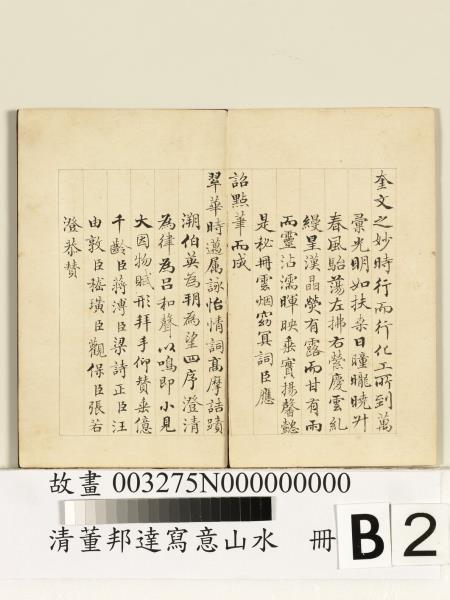 奎文之妙時行而行化工所到萬
彙光明如扶桑日曈曨曉升
春風駘蕩左拂右縈慶雲糺
縵星漢晶熒有露而甘有雨
而靈沾濡暉映垂實揚馨懿
是秘冊雲烟窈冥詞臣應
詔點筆而成
翠華時邁属詠怡情詞高摩詰蹟
溯伯英為朔為望四序澄清
為律為呂和聲以鳴即小見
大因物賦形拜手仰贊垂億
千齡臣蔣溥臣梁詩正臣汪
由敦臣嵇璜臣觀保臣張若
澄恭贊
故畫 003275N000000000
清董邦達寫意山水 冊
B 2